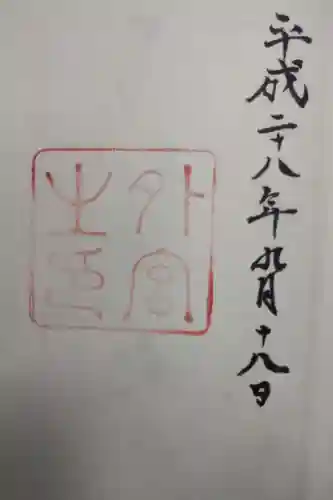 平成二十八年九月十八日
外宮之印